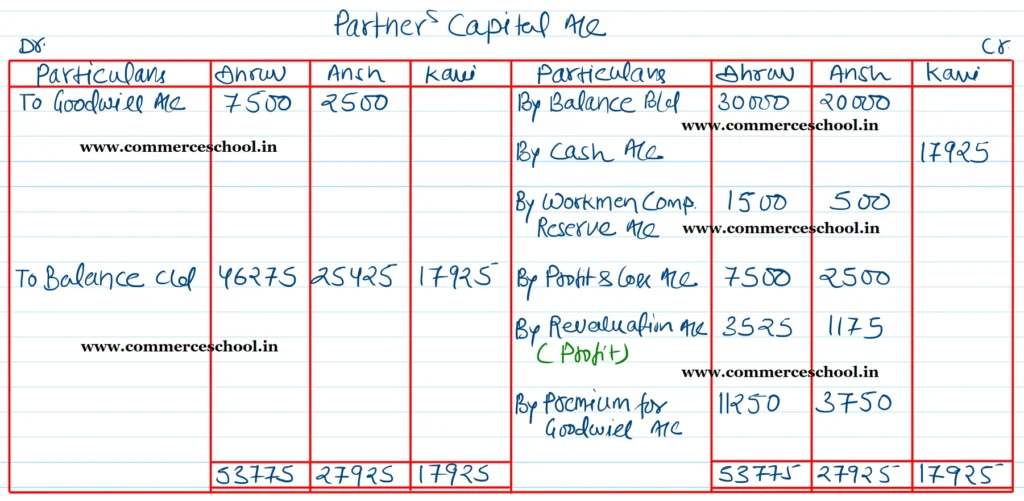 Partner's Capital A/c
Dr. Cr.
Particulars Dhruv Ansh Kavi Particulars Dhruv Ansh Kavi
To Goodwill A/c 7500 2500 By Balance B/d 30000 20000
www.commerceschool.in
www.commerceschool.in
By Cash A/c 17925
By Workmen Comp. 1500 500
Reserve A/c www.commerceschool.in
To Balance C/d 46275 25425 17925 By Profit & Loss A/c 7500 2500
By Revaluation A/c 3525 1175
www.commerceschool.in
(Profit)
www.commerceschool.in
By Premium for 11250 3750
Goodwill A/c
53775 27925 17925 53775 27925 17925